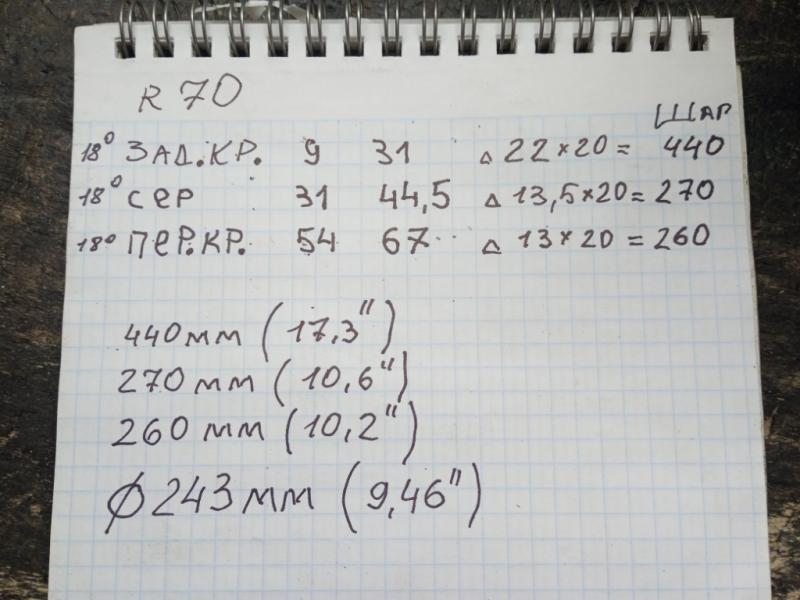 R 70
ШАГ
18° ЗАД.КР. 9 31 Δ 22×20 = 440
18° СЕР 31 44,5 Δ 13,5×20 = 270
18° ПЕР.КР. 54 67 Δ 13×20 = 260
440мм (17,3")
270 мм (10,6")
260 мм (10,2")
Ø 243 мм (9,46")